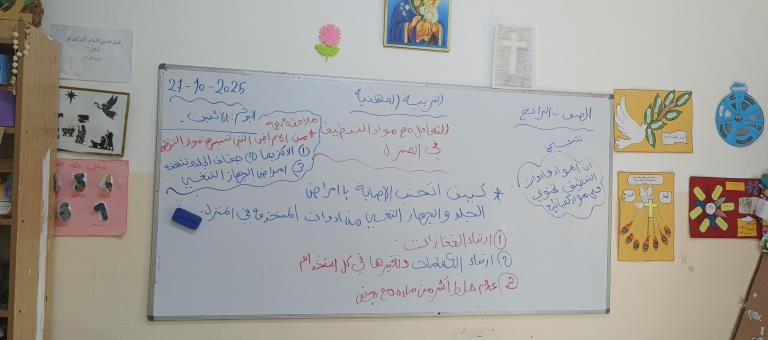 27-10-2025
التربية المهنية
الصف: الرابع
اليوم: الاثنين.
التعامل مع مواد التنظيف
في المنزل
ملاحظة مهمة
* من الأمراض التي تسببها مواد التنظيف
① الأكزيما ② جفاف الجلد وتشققه
③ أمراض الجهاز التنفسي
مواد وأدوات
التنظيف تحتوي
على مواد كيميائية
* كيف أتجنب الإصابة بأمراض
الجلد والجهاز التنفسي من أدوات المستخدمة في المنزل.
① ارتداء القفازات.
② ارتداء الكمامات وتغييرها في كل استخدام
③ عدم خلط أكثر من مادة مع بعض